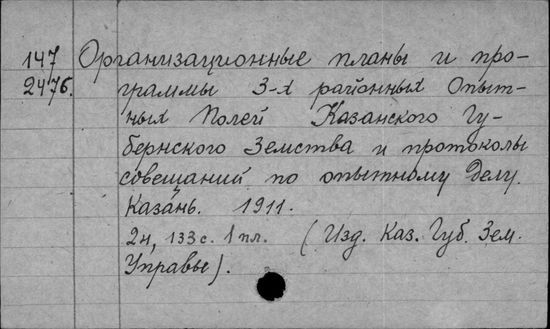 147 Организационные планы и про-
2476. граммы 3-х районных Опыт-
ных Полей Казанского Гу-
бернского Земства и протоколы
совещаний по опытному Делу.
Казань. 1911.
2н, 133 с. 1 пл. (Изд. Каз. Губ. Зем.
Управы).